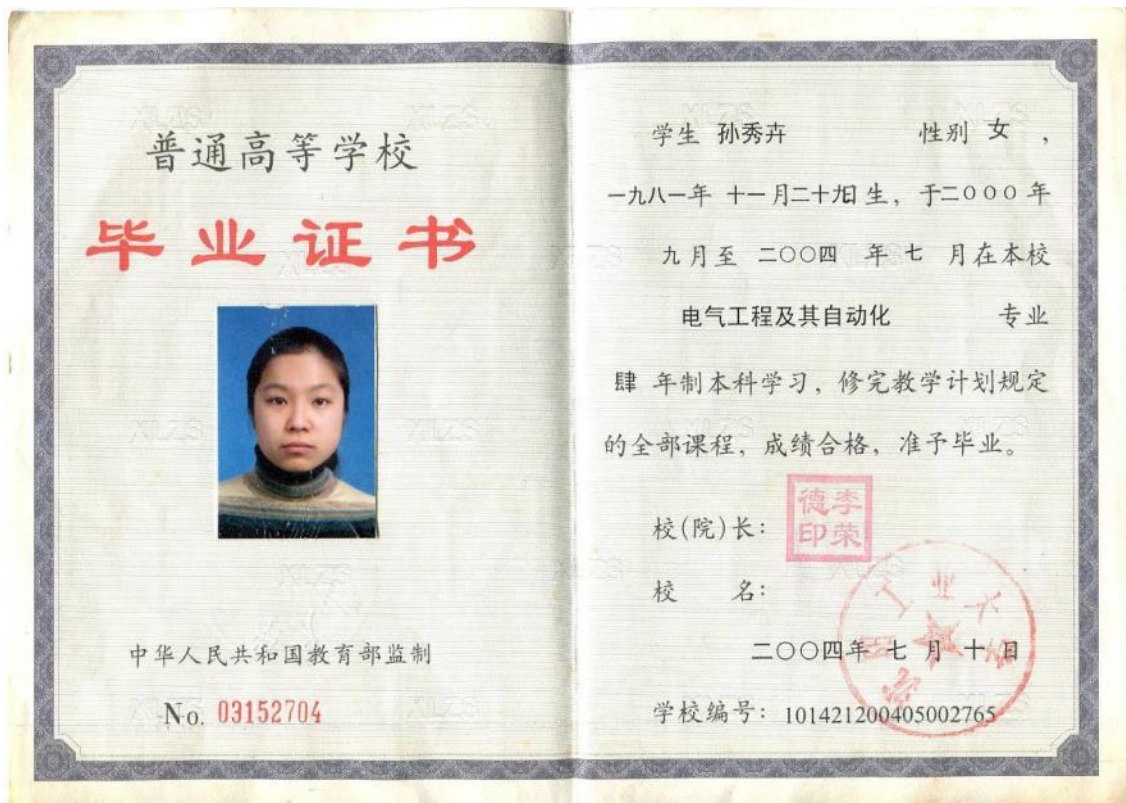 普通高等学校
毕业证书
中华人民共和国教育部监制
No. 03152704
学生 孙秀卉 性别 女 ,
一九八一年 十一月二十九日生, 于二000 年
九月至 二〇〇四 年 七 月在本校
电气工程及其自动化 专业
肆 年制本科学习, 修完教学计划规定
的全部课程, 成绩合格, 准予毕业。
校(院)长: 李荣德印
校 名:
工业大
二〇〇四年 七 月 十 日
学校编号: 101421200405002765